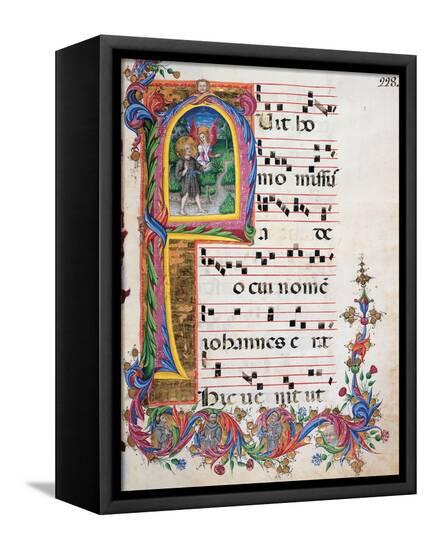 228.
Fuit ho
mo missus
a de
o cui nome
iohannes e rat
hic ue nit ut